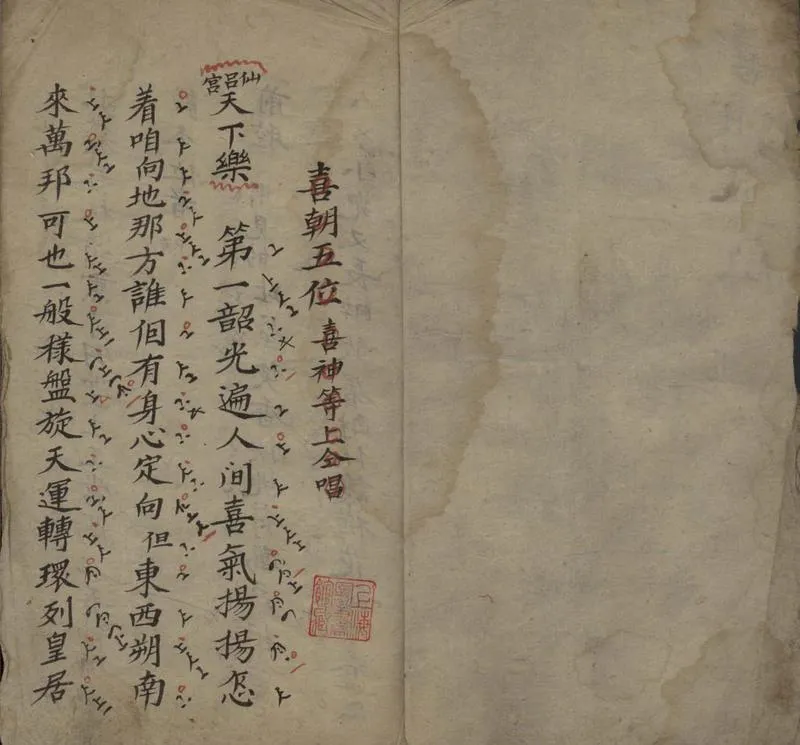 喜朝五位 喜神等上仝唱
仙呂宮
天下樂 第一韶光遍人间喜氣揚揚怎
着咱向地那方誰佪有身心定向但東西朔南
來萬邦可也一般樣盤旋天運轉環列皇居
上海圖書館藏